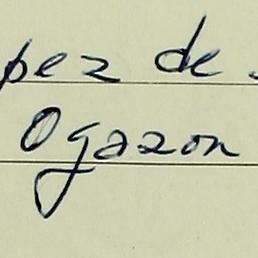 pez de
Ogazon